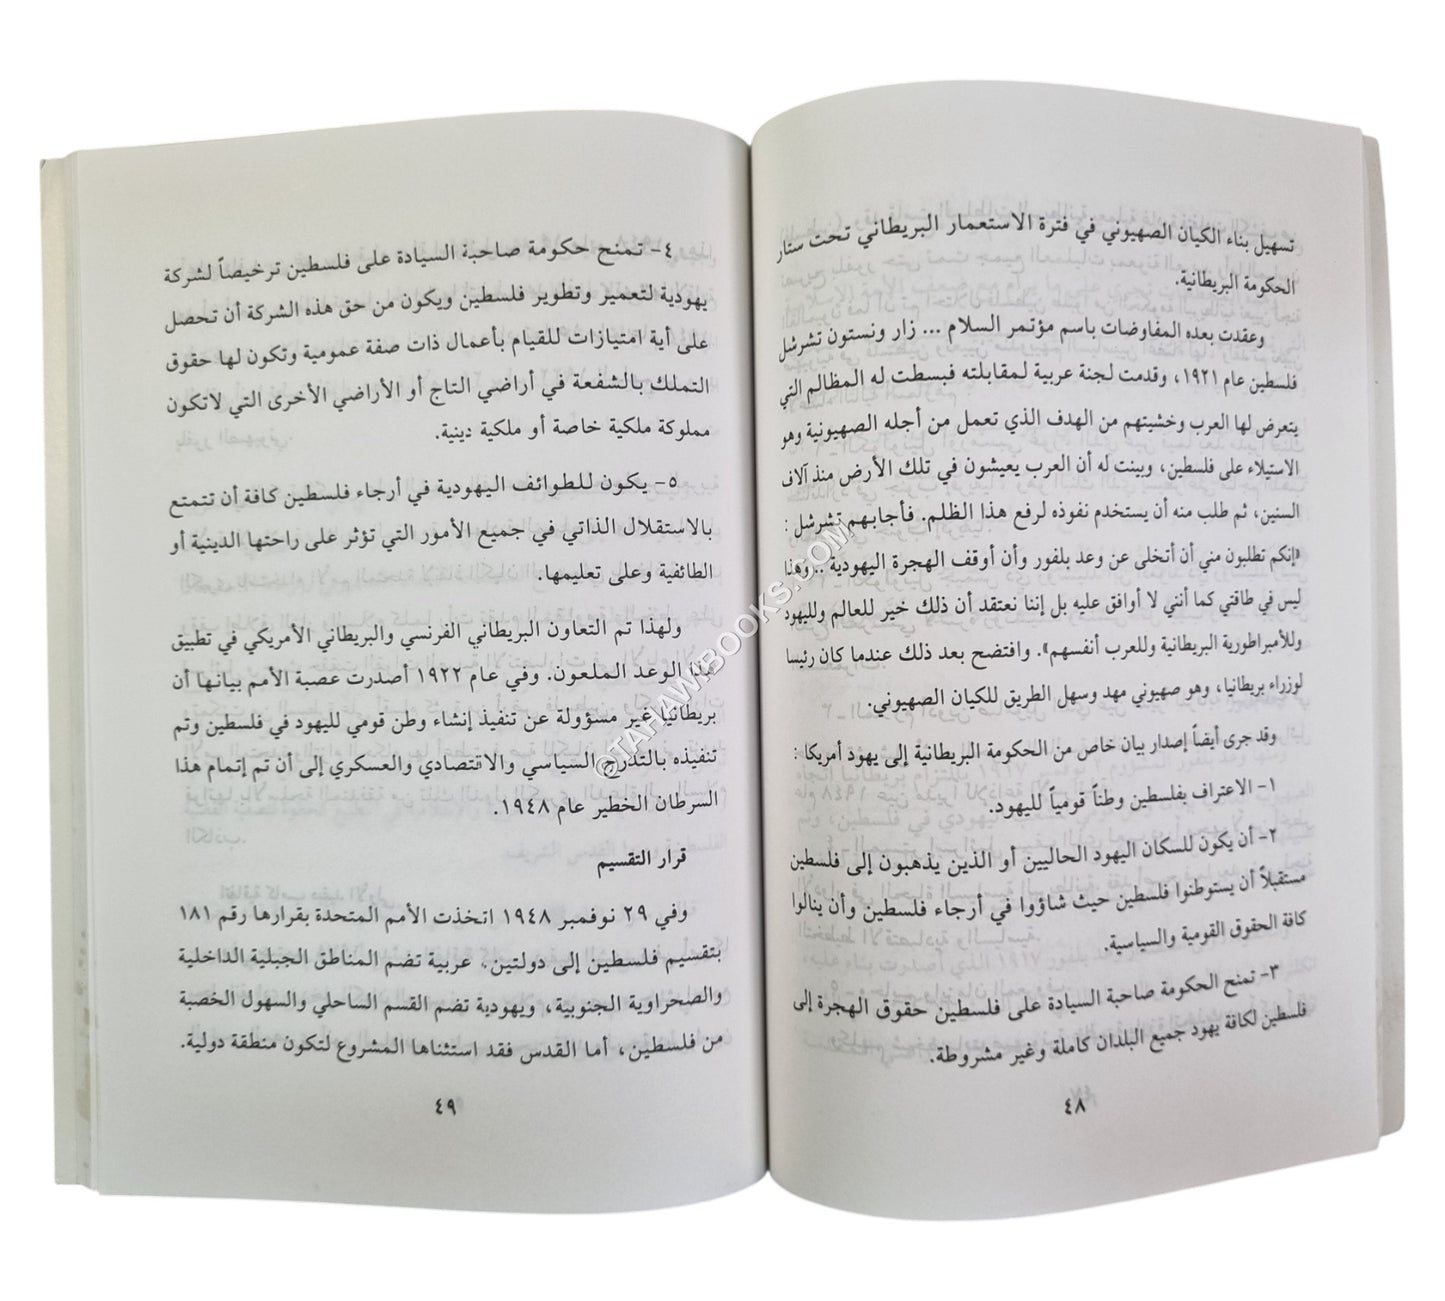 تسهيل بناء الكيان الصهيوني في فترة الاستعمار البريطاني تحت ستار
الحكومة البريطانية.
وعقدت بعده المفاوضات باسم مؤتمر السلام ... زار ونستون تشرشل
فلسطين عام ١٩٢١، وقدمت لجنة عربية لمقابلته فبسطت له المظالم التي
يتعرض لها العرب وخشيتهم من الهدف الذي تعمل من أجله الصهيونية وهو
الاستيلاء على فلسطين، وبينت له أن العرب يعيشون في تلك الأرض منذ آلاف
السنين، ثم طلب منه أن يستخدم نفوذه لرفع هذا الظلم. فأجابهم تشرشل :
«إنكم تطلبون مني أن أتخلى عن وعد بلفور وأن أوقف الهجرة اليهودية .. وهذا
ليس في طاقتي كما أنني لا أوافق عليه بل إننا نعتقد أن ذلك خير للعالم ولليهود
وللأمبراطورية البريطانية وللعرب أنفسهم». وافتضح بعد ذلك عندما كان رئيسا
لوزراء بريطانيا، وهو صهيوني مهد وسهل الطريق للكيان الصهيوني.
وقد جرى أيضاً إصدار بيان خاص من الحكومة البريطانية إلى يهود أمريكا :
١- الاعتراف بفلسطين وطناً قومياً لليهود.
٢- أن يكون للسكان اليهود الحاليين أو الذين يذهبون إلى فلسطين
مستقبلاً أن يستوطنوا فلسطين حيث شاؤوا في أرجاء فلسطين وأن ينالوا
كافة الحقوق القومية والسياسية.
٣- تمنح الحكومة صاحبة السيادة على فلسطين حقوق الهجرة إلى
فلسطين لكافة يهود جميع البلدان كاملة وغير مشروطة.
٤٨
٤- تمنح حكومة صاحبة السيادة على فلسطين ترخيصاً لشركة
يهودية لتعمير وتطوير فلسطين ويكون من حق هذه الشركة أن تحصل
على أية امتيازات للقيام بأعمال ذات صفة عمومية وتكون لها حقوق
التملك بالشفعة في أراضي التاج أو الأراضي الأخرى التي لاتكون
مملوكة ملكية خاصة أو ملكية دينية.
٥- يكون للطوائف اليهودية في أرجاء فلسطين كافة أن تتمتع
بالاستقلال الذاتي في جميع الأمور التي تؤثر على راحتها الدينية أو
الطائفية وعلى تعليمها.
ولهذا تم التعاون البريطاني الفرنسي والبريطاني الأمريكي في تطبيق
هذا الوعد الملعون. وفي عام ١٩٢٢ أصدرت عصبة الأمم بيانها أن
بريطانيا غير مسؤولة عن تنفيذ إنشاء وطن قومي لليهود في فلسطين وتم
تنفيذه بالتدرج السياسي والاقتصادي والعسكري إلى أن تم إتمام هذا
السرطان الخطير عام ١٩٤٨.
قرار التقسيم
وفي ٢٩ نوفمبر ١٩٤٨ اتخذت الأمم المتحدة بقرارها رقم ١٨١
بتقسيم فلسطين إلى دولتين، عربية تضم المناطق الجبلية الداخلية
والصحراوية الجنوبية، ويهودية تضم القسم الساحلي والسهول الخصبة
من فلسطين، أما القدس فقد استثناها المشروع لتكون منطقة دولية.
٤٩
©TAHAWIBOOKS.COM